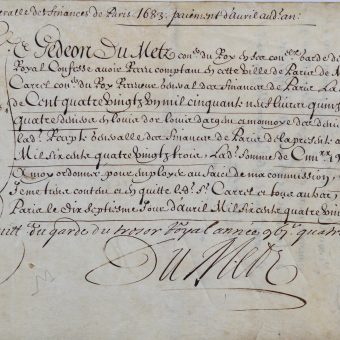 eralle des finances de Paris. 1683. paiement d'avril aud. an:
Gedeon Du Metz con.er du Roy en ses con.els Garde du
Royal Confesse avoir Receu comptant en cette ville de Paris de M
Carrel con.er du Roy Receveur general des finances de Paris La
de Cent quatre vingts un mil cinquante sept livres quinze
quatre deniers en louis d'or louis d'argent et monnoye des deniers
lad. Recepte generalle des finances de Paris de la presente a
Mil six cens quatre vingts trois, Lad. Somme de
a moy ordonnée pour employer au faict de ma commission,
Je me tiens content et en quitte led. S. Carrel et tous autres,
Paris le dix septiesme jour d'avril Mil six cens quatre vingt
quitt. du garde du tresor Royal année quatre
Du Metz